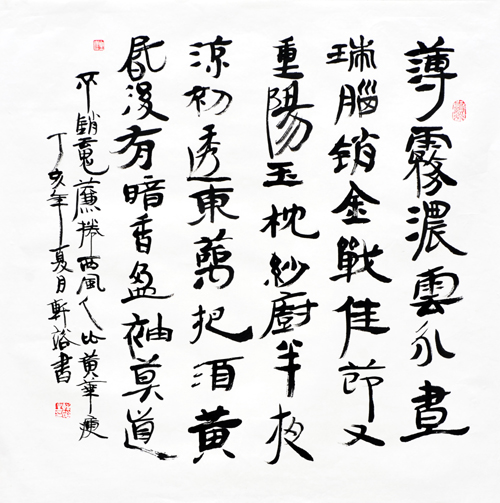 薄霧濃雲永晝
瑞腦銷金獸佳節又
重陽玉枕紗廚半夜
涼初透東籬把酒黃
昏後有暗香盈袖莫道
不銷魂簾捲西風人比黃華瘦
丁亥年夏月軒洛書